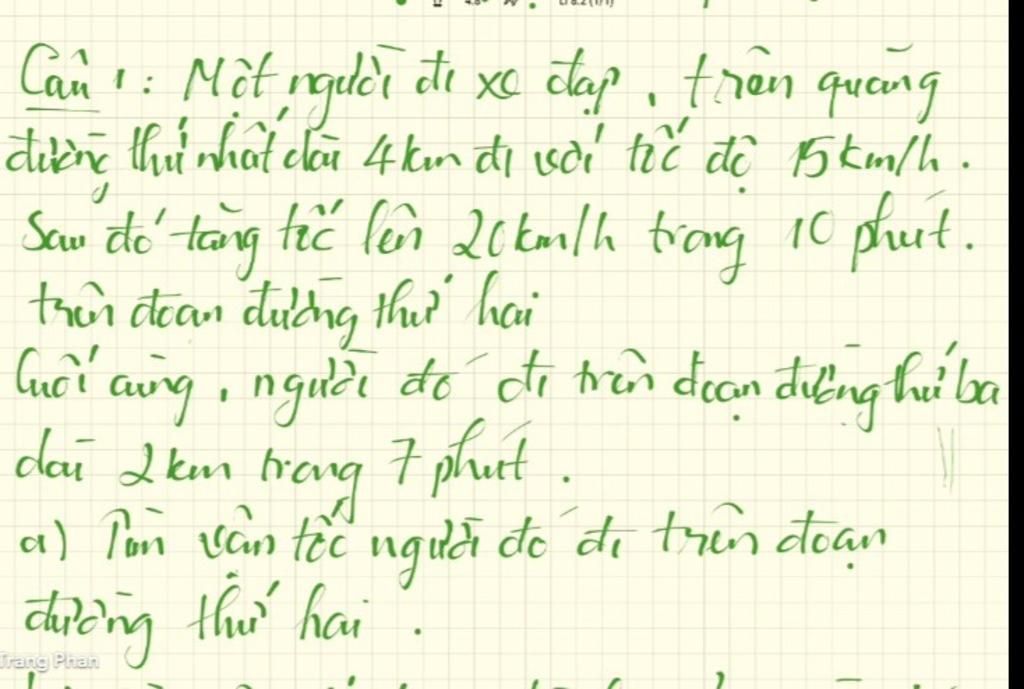 Câu 1: Một người đi xe đạp, trên quãng
đường thứ nhất dài 4km đi với tốc độ 15km/h.
Sau đó tăng tốc lên 20km/h trong 10 phút.
trên đoạn đường thứ hai
Cuối cùng, người đó đi trên đoạn đường thứ ba
dài 2km trong 7 phút.
a) Tìm vận tốc người đó đi trên đoạn
đường thứ hai.
Trang Phan